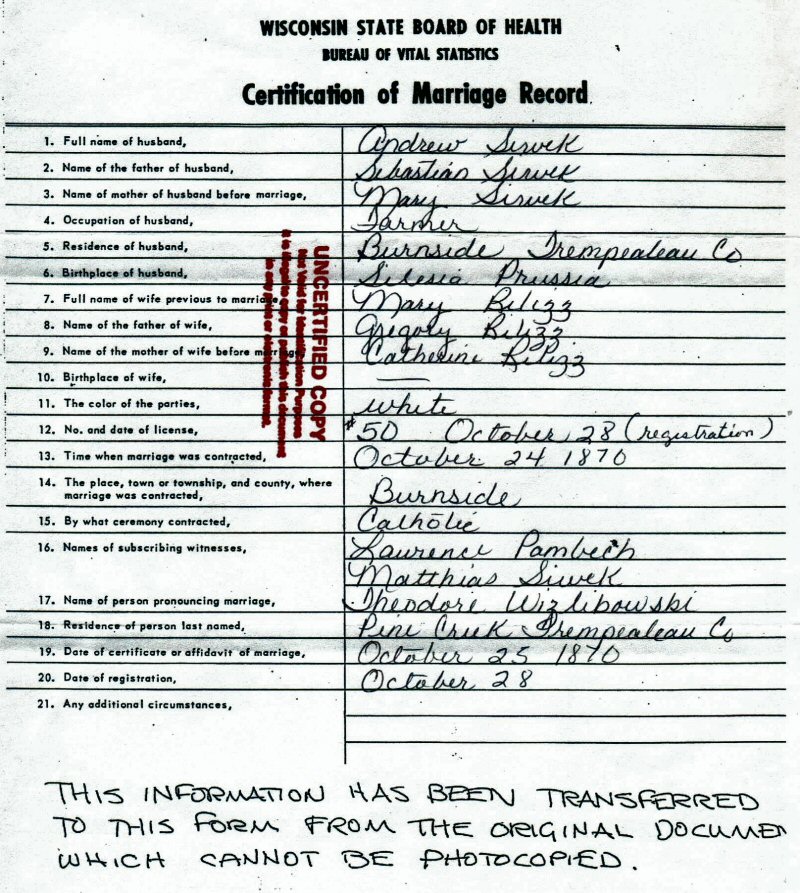 WISCONSIN STATE BOARD OF HEALTH
BUREAU OF VITAL STATISTICS
Certification of Marriage Record
1. Full name of husband, Andrew Sirvek
2. Name of the father of husband, Sebastian Sirvek
3. Name of mother of husband before marriage, Mary Sirvek
4. Occupation of husband, Farmer
5. Residence of husband, Burnside Trempealeau Co
6. Birthplace of husband, Silesia Prussia
7. Full name of wife previous to marriage, Mary Bilizz
8. Name of the father of wife, Gregory Bilizz
9. Name of the mother of wife before marriage, Catherine Bilizz
10. Birthplace of wife, —
11. The color of the parties, white
12. No. and date of license, #50 October 28 (registration)
13. Time when marriage was contracted, October 24 1870
14. The place, town or township, and county, where
marriage was contracted, Burnside
15. By what ceremony contracted, Catholic
16. Names of subscribing witnesses, Laurence Pambech
Matthias Siwek
17. Name of person pronouncing marriage, Theodore Wizlibowski
18. Residence of person last named, Pine Creek Trempealeau Co
19. Date of certificate or affidavit of marriage, October 25 1870
20. Date of registration, October 28
21. Any additional circumstances,
UNCERTIFIED COPY
Not Valid for Identification Purposes
It is illegal to copy or publish this document
in any print or electronic format.
THIS INFORMATION HAS BEEN TRANSFERRED
TO THIS FORM FROM THE ORIGINAL DOCUMEN
WHICH CANNOT BE PHOTOCOPIED.